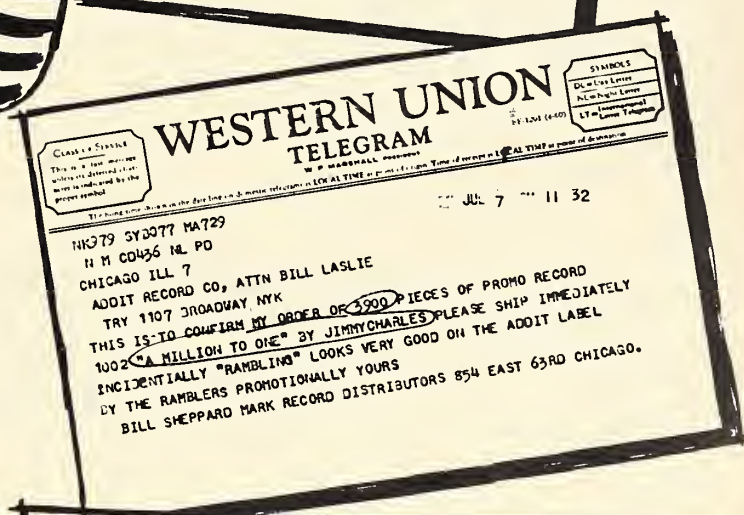 WESTERN UNION
TELEGRAM
W P MARSHALL PRESIDENT
CLASS OF SERVICE
This is a fast message
unless its deferred char-
acter is indicated by the
proper symbol.
SYMBOLS
DL=Day Letter
NL=Night Letter
LT=International Letter Telegram
The filing time shown in the date line on domestic telegrams is LOCAL TIME at point of origin. Time of receipt is LOCAL TIME at point of destination
JUL 7 11 32
NK979 MA729
N M CD436 NL PD
CHICAGO ILL 7
ADDIT RECORD CO, ATTN BILL LASLIE
TRY 1107 BROADWAY NYK
THIS IS-TO CONFIRM MY ORDER OF 3900 PIECES OF PROMO RECORD
1002 "A MILLION TO ONE" BY JIMMYCHARLES PLEASE SHIP IMMEDIATELY
INCIDENTIALLY "RAMBLING" LOOKS VERY GOOD ON THE ADDIT LABEL
BY THE RAMBLERS PROMOTIONALLY YOURS
BILL SHEPPARD MARK RECORD DISTRIBUTORS 854 EAST 63RD CHICAGO.